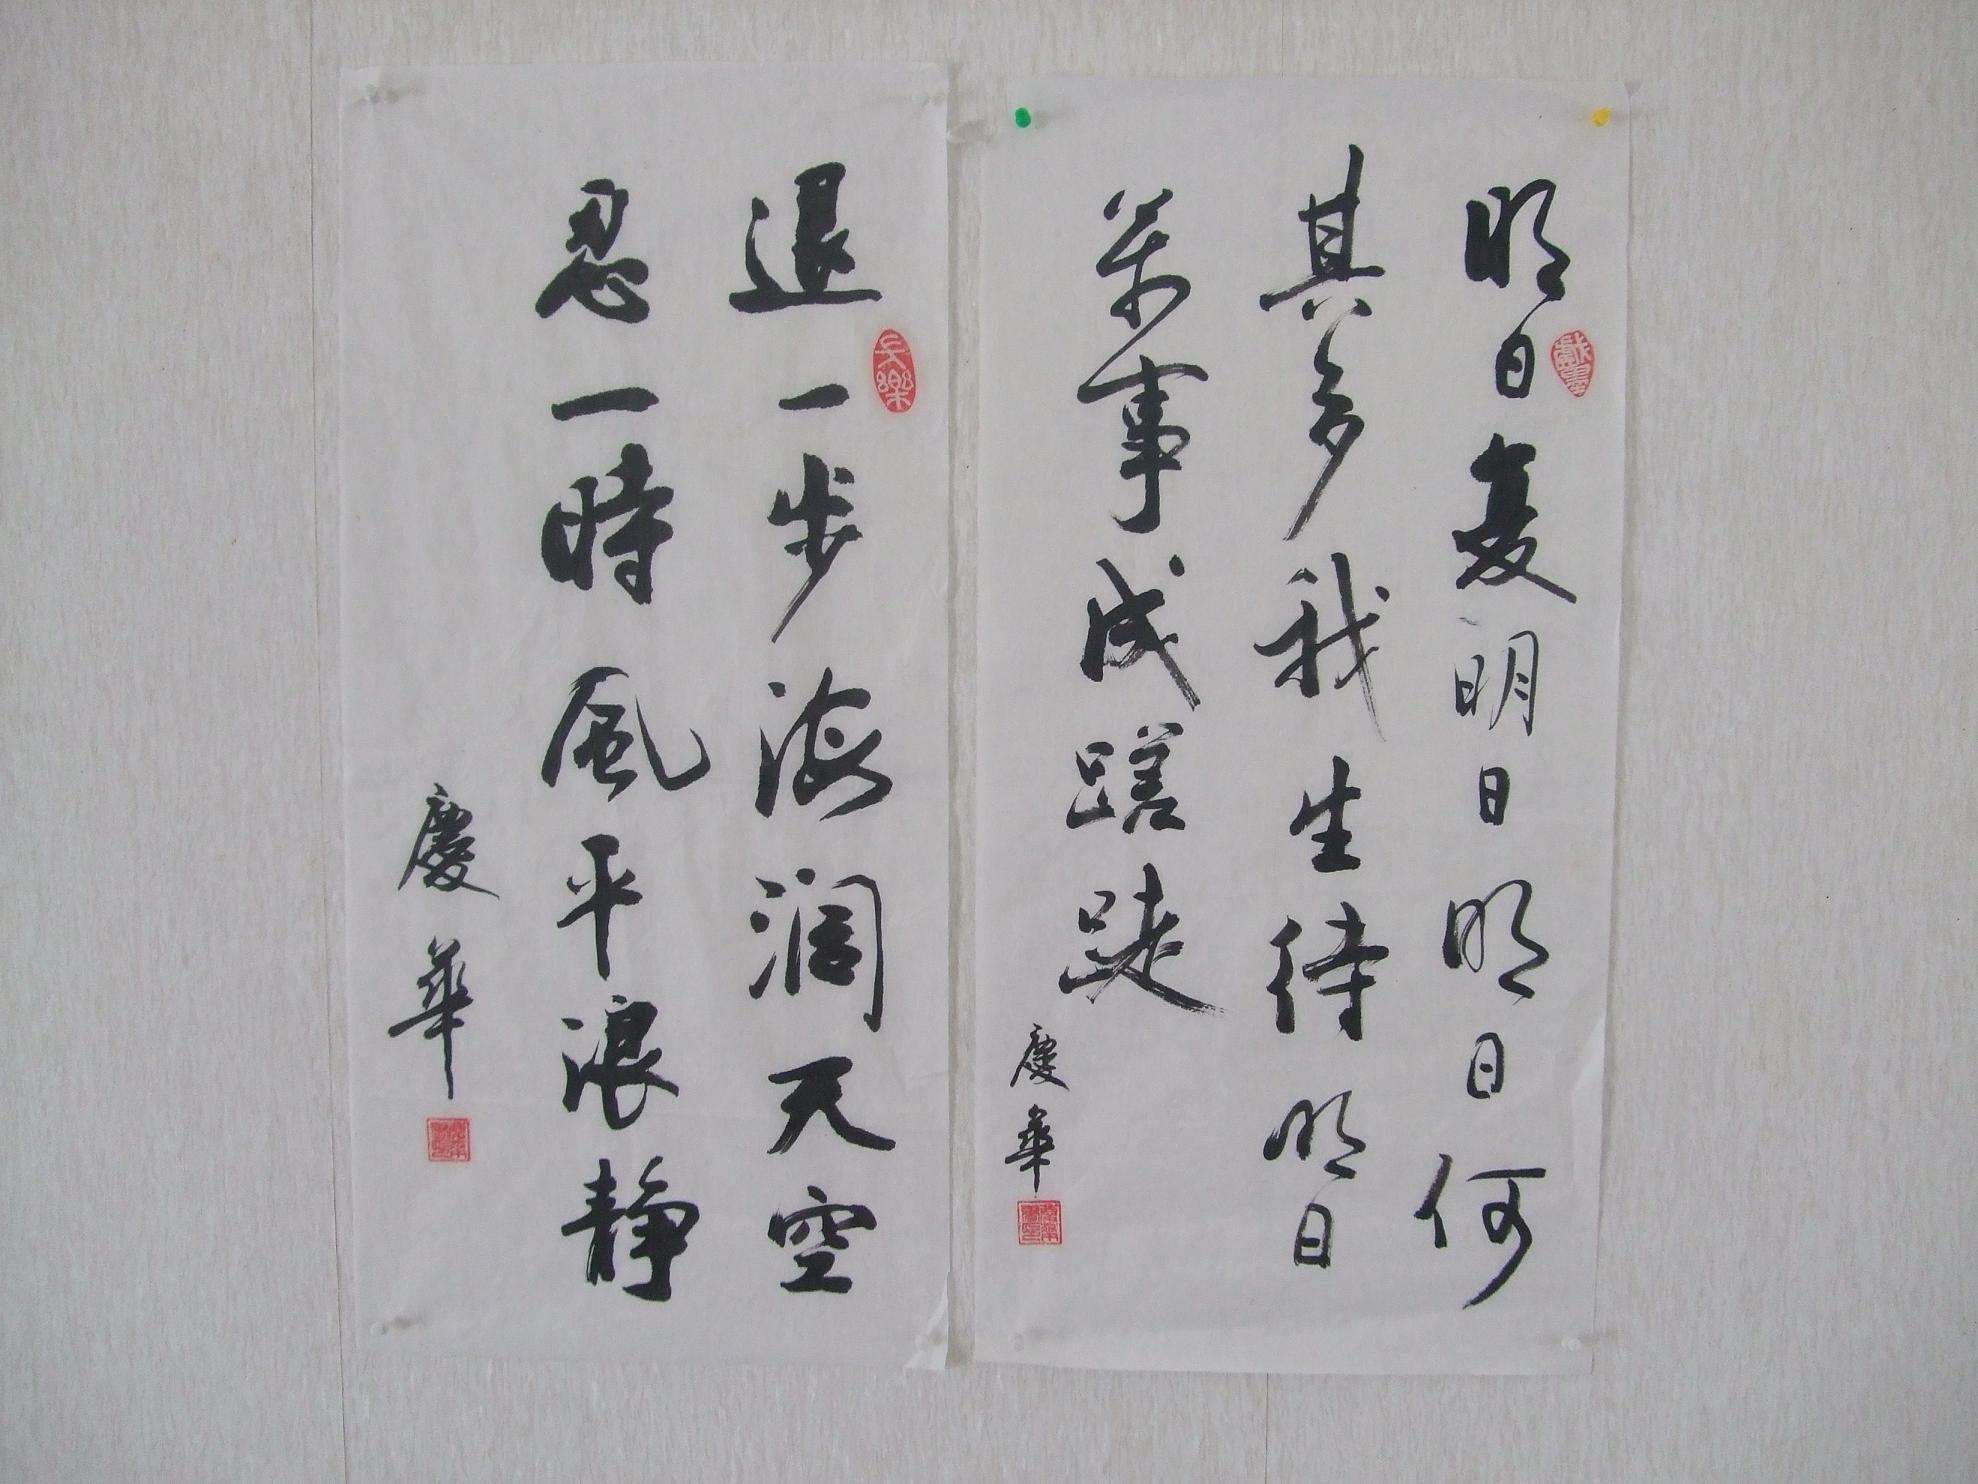 明日复明日明日何
其多我生待明日
万事成蹉跎
慶華
退一步海阔天空
忍一時風平浪静
慶華